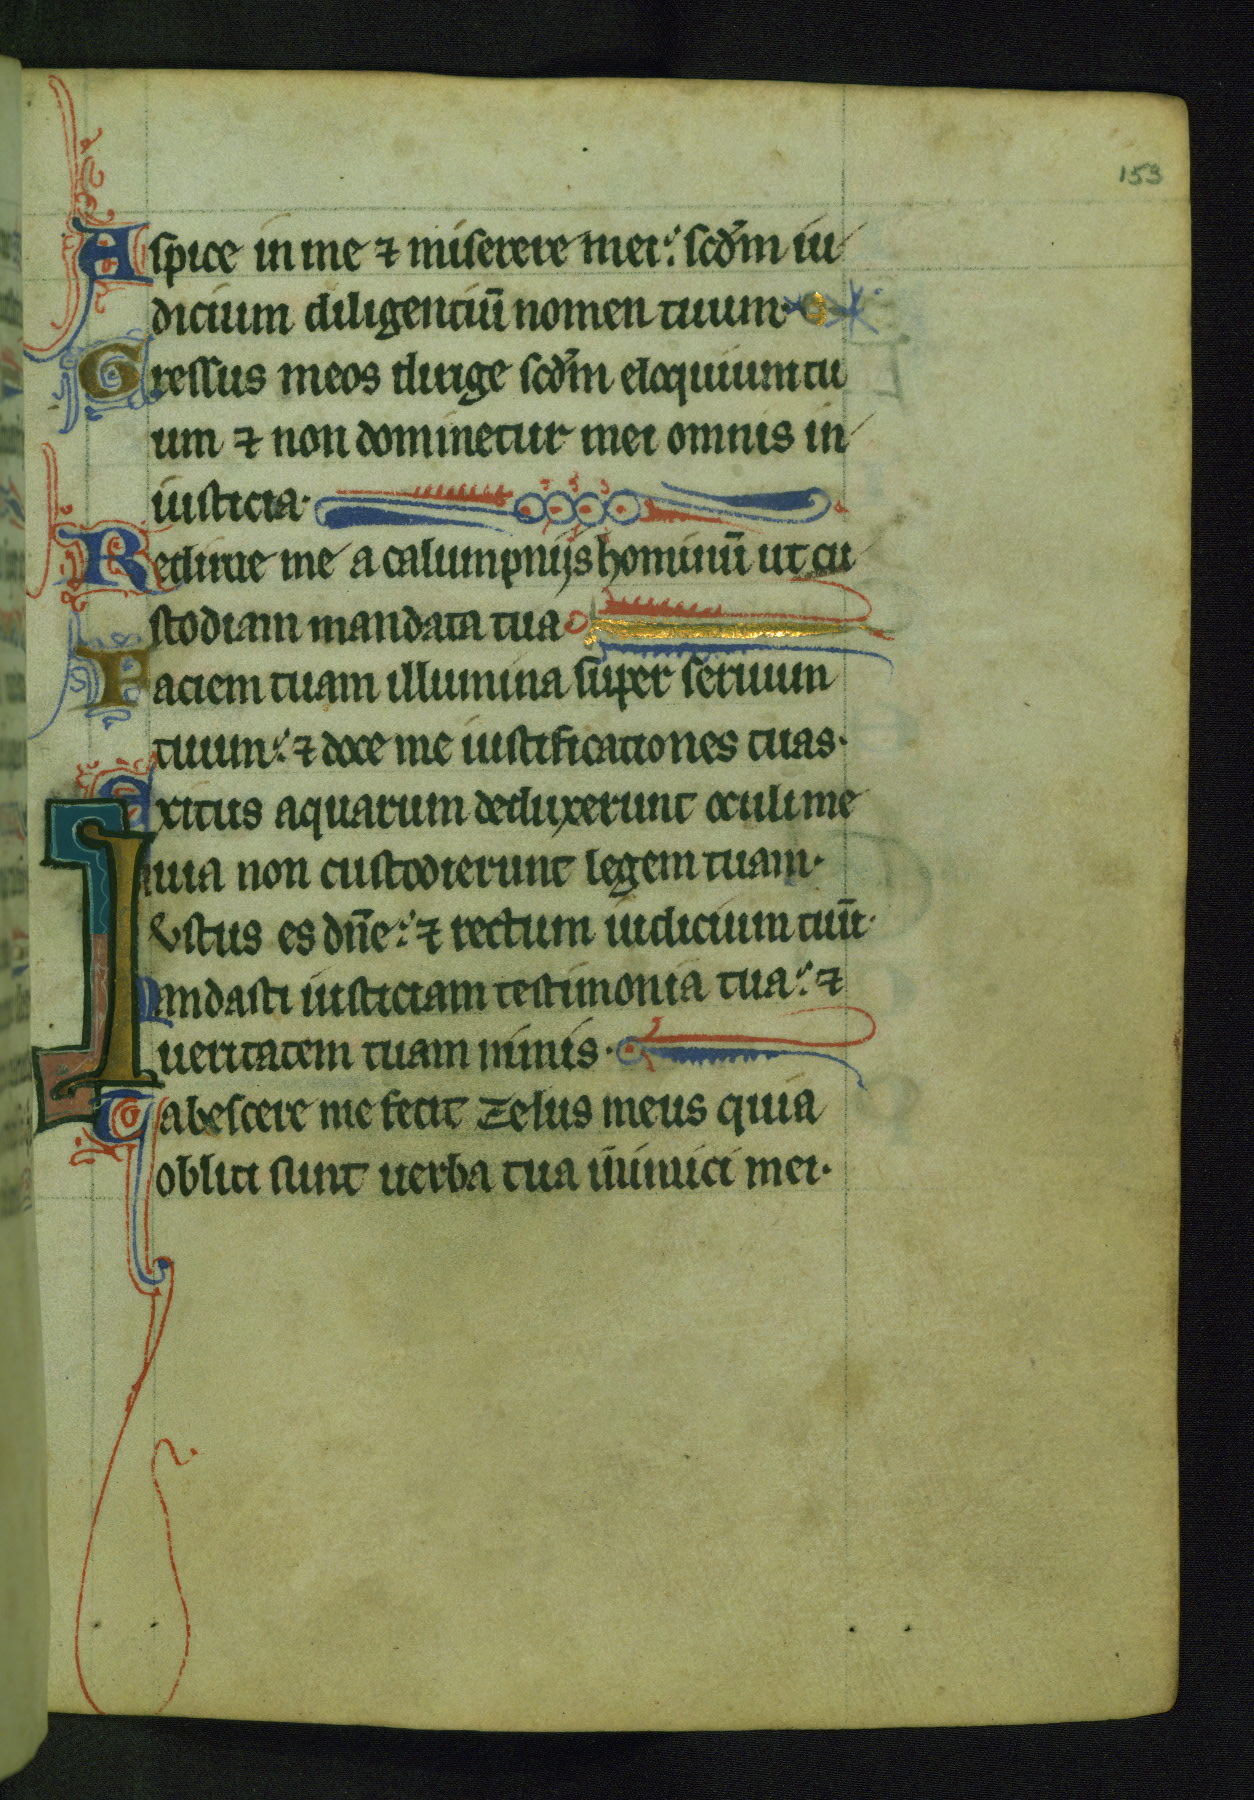 153
Aspice in me ⁊ miserere mei: scd̄m iu
dicium diligentiū nomen tuum.
Gressus meos dirige scd̄m eloquium tu
um ⁊ non dominetur mei omnis in
iusticia.
Redime me a calumpnijs hominū ut cu
stodiam mandata tua
Faciem tuam illumina super seruum
tuum: ⁊ doce me iustificationes tuas.
Exitus aquarum deduxerunt oculi me
i quia non custodierunt legem tuam.
Iustus es dn̄e: ⁊ rectum iudicium tuū.
Mandasti iusticiam testimonia tua: ⁊
ueritatem tuam nimis.
Tabescere me fecit zelus meus quia
obliti sunt uerba tua inimici mei.